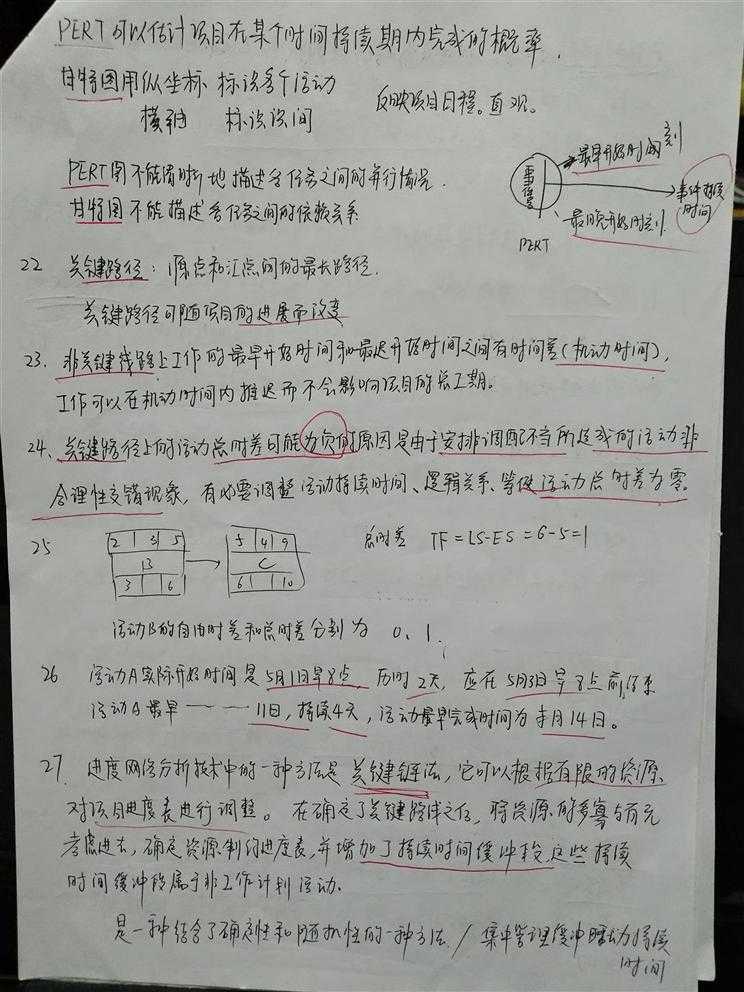 PERT 可以估计项目在某个时间持续期内完成的概率.
甘特图用纵坐标 标识各个活动
横轴 标识时间 反映项目日程。直观。
PERT图不能清晰地描述各任务之间的并行情况.
甘特图 不能描述各任务之间的依赖关系
最早开始时间刻
事件持续
时间
最晚开始时刻
PERT
22 关键路径：源点和汇点间的最长路径.
关键路径可随项目的进展而改变
23. 非关键线路上工作的最早开始时间和最迟开始时间之间有时间差(机动时间),
工作可以在机动时间内推迟而不会影响项目的总工期。
24、关键路径上的活动总时差可能为负的原因是由于安排调配不当所造成的活动非
合理性交错现象，有必要调整活动持续时间、逻辑关系、等使活动总时差为零。
25 2 | 3 | 5 5 | 4 | 9 总时差 TF = LS-ES = 6-5=1
B C
3 | | 6 6 | | 10
活动B的自由时差和总时差分别为 0、1.
26 活动A实际开始时间是5月1日早8点 历时2天, 应在5月3日早8点前结束
活动A最早 —— —— 11日，持续4天，活动最早完成时间为 本月14日。
27. 进度网络分析技术中的一种方法是 关键链法，它可以根据有限的资源
对项目进度表进行调整。在确定了关键路线之后，将资源的 与
考虑进去，确定资源制约进度表，并增加了持续时间缓冲段，这些持续
时间缓冲段属于非工作计划活动.
是一种结合了确定性和随机性的一种方法 / 集中管理缓冲 活动持续
时间